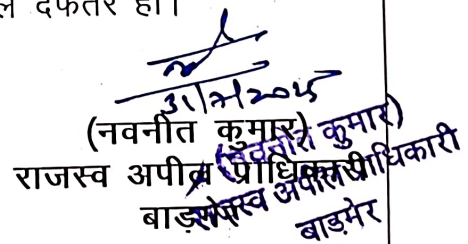 ल दफतर हो।
31/7/2025
(नवनीत कुमार)
राजस्व अपील प्राधिकारी
बाड़मेर
(नवनीत कुमार)
राजस्व अपील प्राधिकारी
बाड़मेर